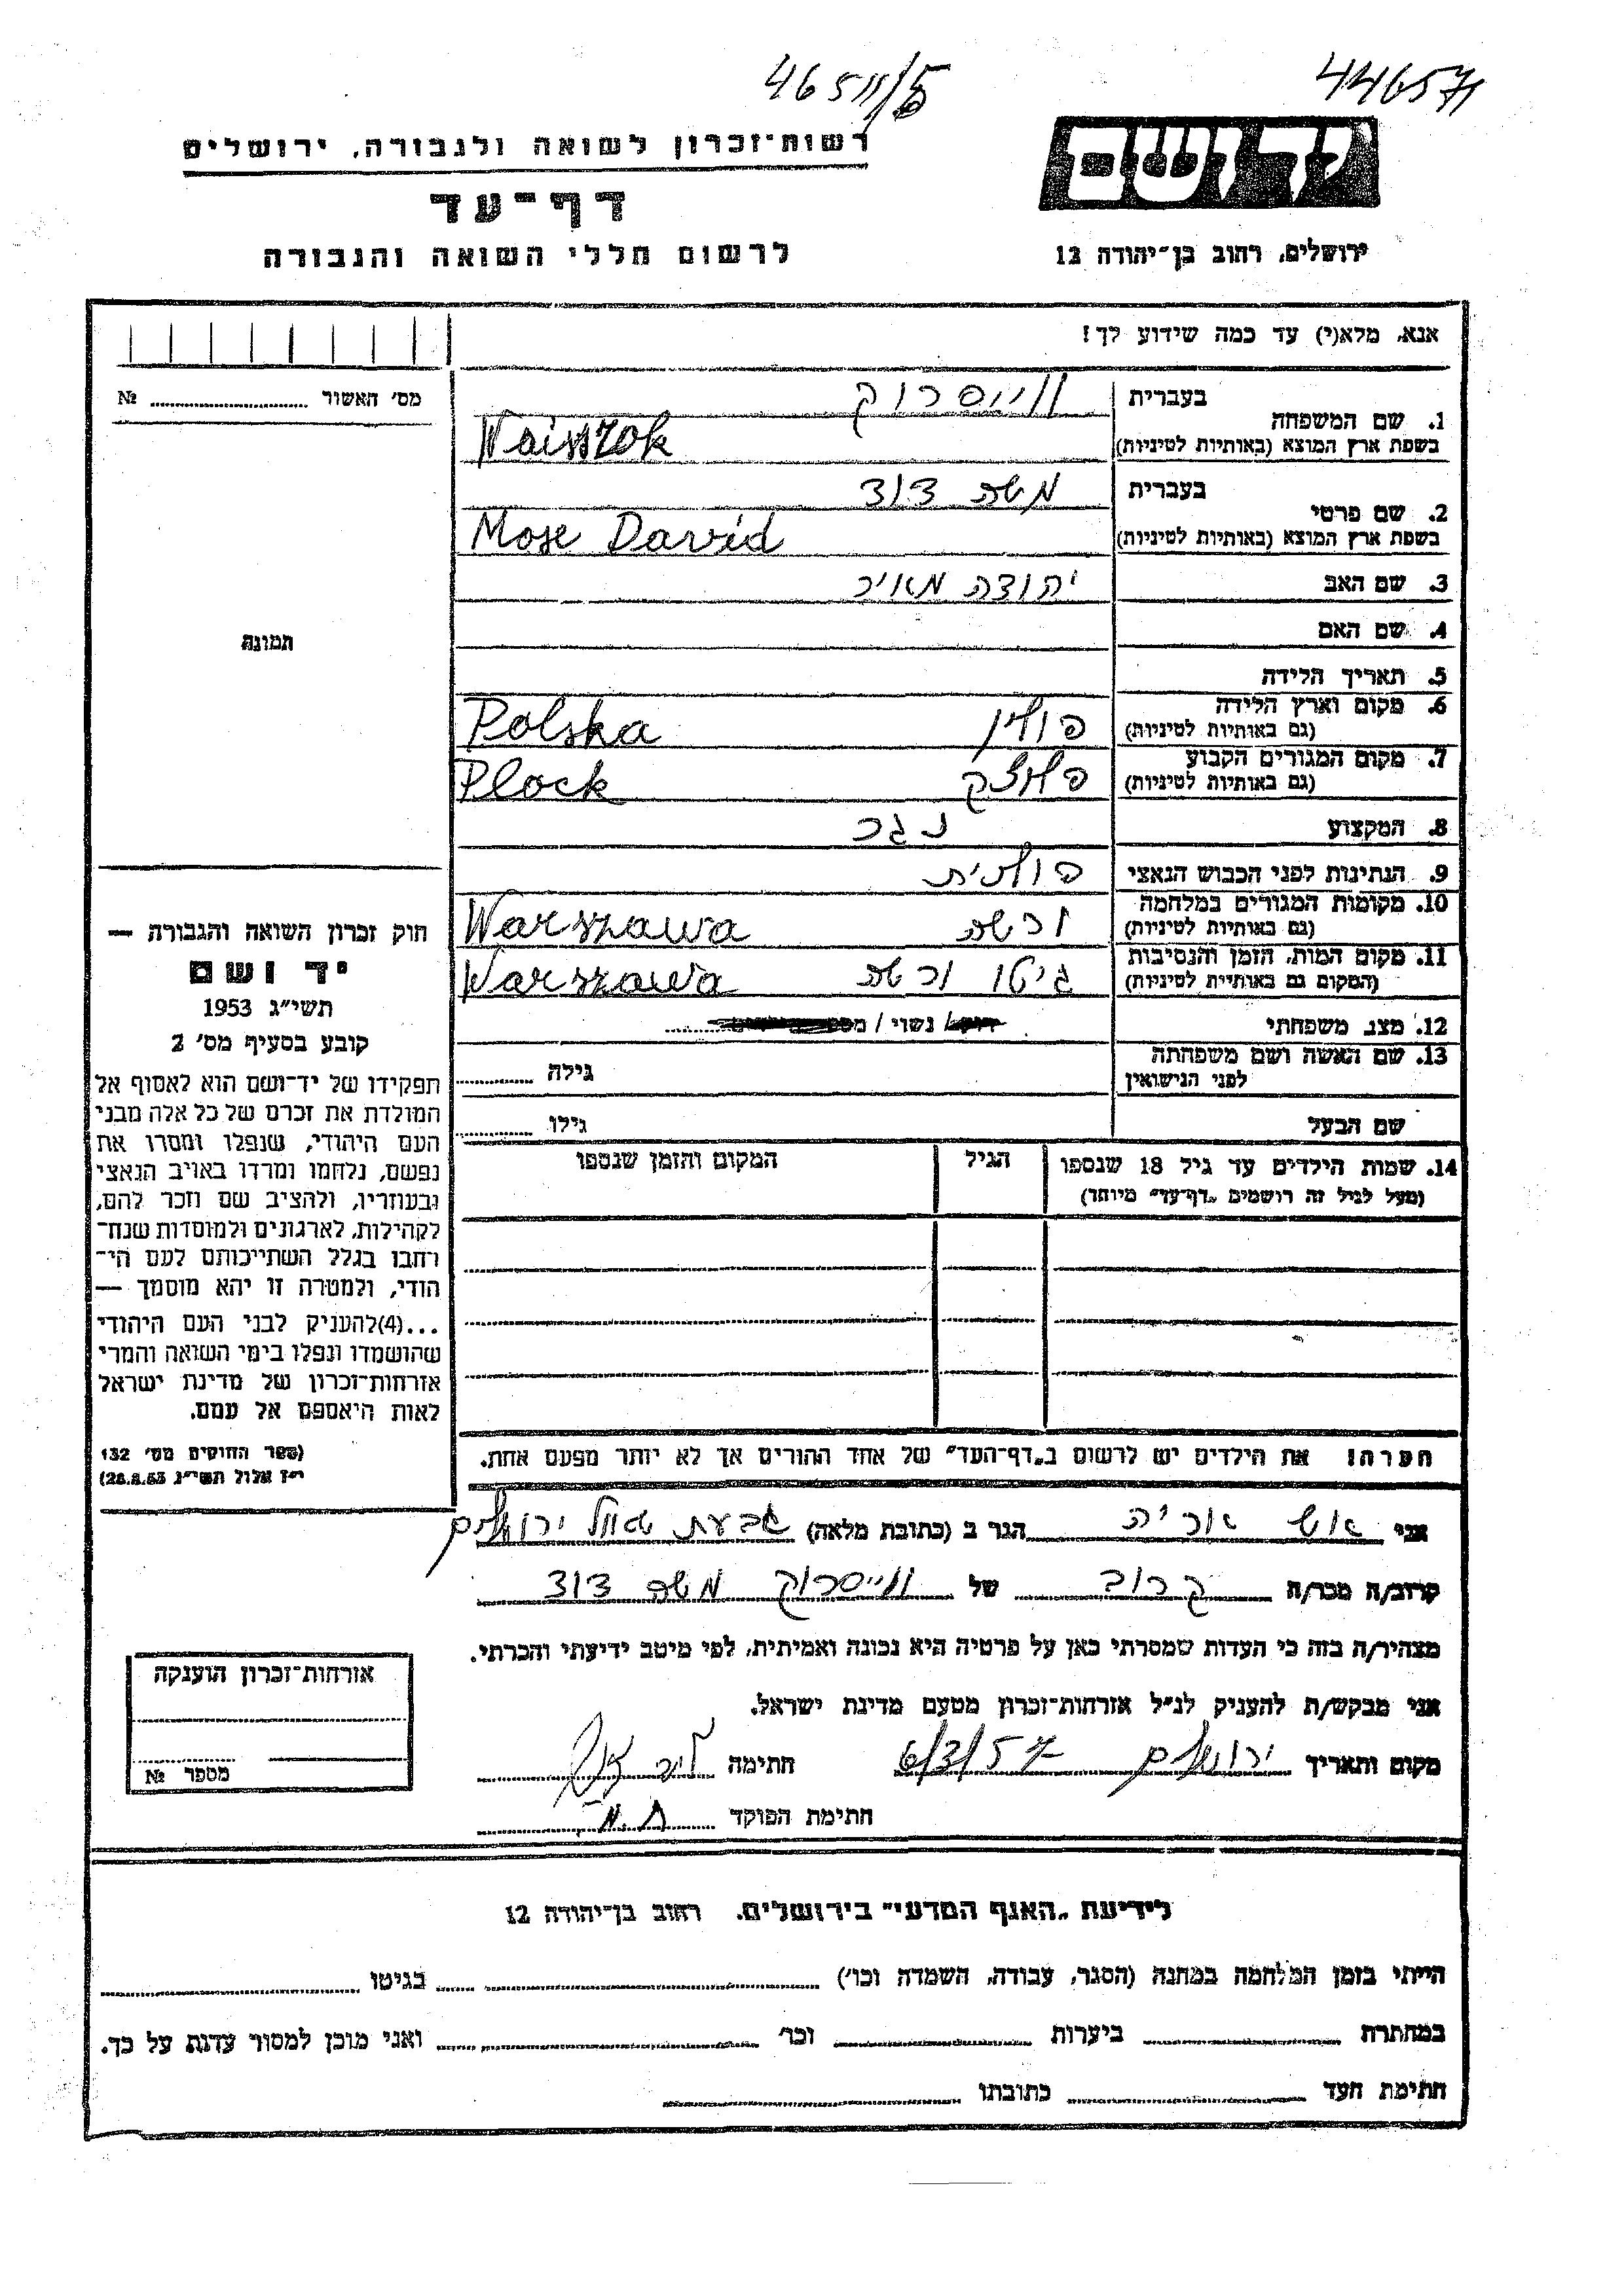 44657
46511/5
יד ושם
רשות־זכרון לשואה ולגבורה, ירושלים
דף־עד
ירושלים, רחוב בן־יהודה 12
לרשום חללי השואה והגבורה
אנא, מלא(י) עד כמה שידוע לך!
מס' האשור № 
1. שם המשפחה
בעברית ווייסרוק
בשפת ארץ המוצא (באותיות לטיניות) Waissrok
2. שם פרטי
בעברית משה דוד
בשפת ארץ המוצא (באותיות לטיניות) Mose David
3. שם האב יהודה מאיר
4. שם האם
תמונה
5. תאריך הלידה
6. מקום וארץ הלידה
(גם באותיות לטיניות) פולין Polska
7. מקום המגורים הקבוע
(גם באותיות לטיניות) פלוצק Plock
8. המקצוע נגר
9. הנתינות לפני הכבוש הנאצי פולנית
10. מקומות המגורים במלחמה
(גם באותיות לטיניות) ורשה Warszawa
11. מקום המות, הזמן והנסיבות
(המקום גם באותיות לטיניות) גיטו ורשה Warszawa
12. מצב משפחתי נשוי /
13. שם האשה ושם משפחתה
לפני הנישואין גילה
שם הבעל גילו
14. שמות הילדים עד גיל 18 שנספו
(מעל לגיל זה רושמים „דף־עד" מיוחד)
הגיל
המקום והזמן שנספו
הערה! את הילדים יש לרשום ב„דף־העד" של אחד ההורים אך לא יותר מפעם אחת.
חוק זכרון השואה והגבורה —
יד ושם
תשי״ג 1953
קובע בסעיף מס' 2
תפקידו של יד־ושם הוא לאסוף אל
המולדת את זכרם של כל אלה מבני
העם היהודי, שנפלו ומסרו את
נפשם, נלחמו ומרדו באויב הנאצי
ובעוזריו, ולהציב שם וזכר להם,
לקהילות, לארגונים ולמוסדות שנח־
רבו בגלל השתייכותם לעם הי־
הודי, ולמטרה זו יהא מוסמך —
...(4)להעניק לבני העם היהודי
שהושמדו ונפלו בימי השואה והמרי
אזרחות־זכרון של מדינת ישראל
לאות היאספם אל עמם.
(ספר החוקים מס' 132
י״ז אלול תשי״ג 28.8.53)
אני אש אריה הגר ב (כתובת מלאה) גבעת שאול ירושלים
קרוב/ה מכר/ה קרוב של ווייסרוק משה דוד
מצהיר/ה בזה כי העדות שמסרתי כאן על פרטיה היא נכונה ואמיתית, לפי מיטב ידיעתי והכרתי.
אני מבקש/ת להעניק לנ״ל אזרחות־זכרון מטעם מדינת ישראל.
מקום ותאריך ירושלים 6/3/57 חתימה
חתימת הפוקד
אזרחות־זכרון הוענקה
מספר №
לידיעת „האגף המדעי" בירושלים, רחוב בן־יהודה 12
הייתי בזמן המלחמה במחנה (הסגר, עבודה, השמדה וכו') בגיטו
במחתרת ביערות וכו' ואני מוכן למסור עדות על כך.
חתימת העד כתובתו